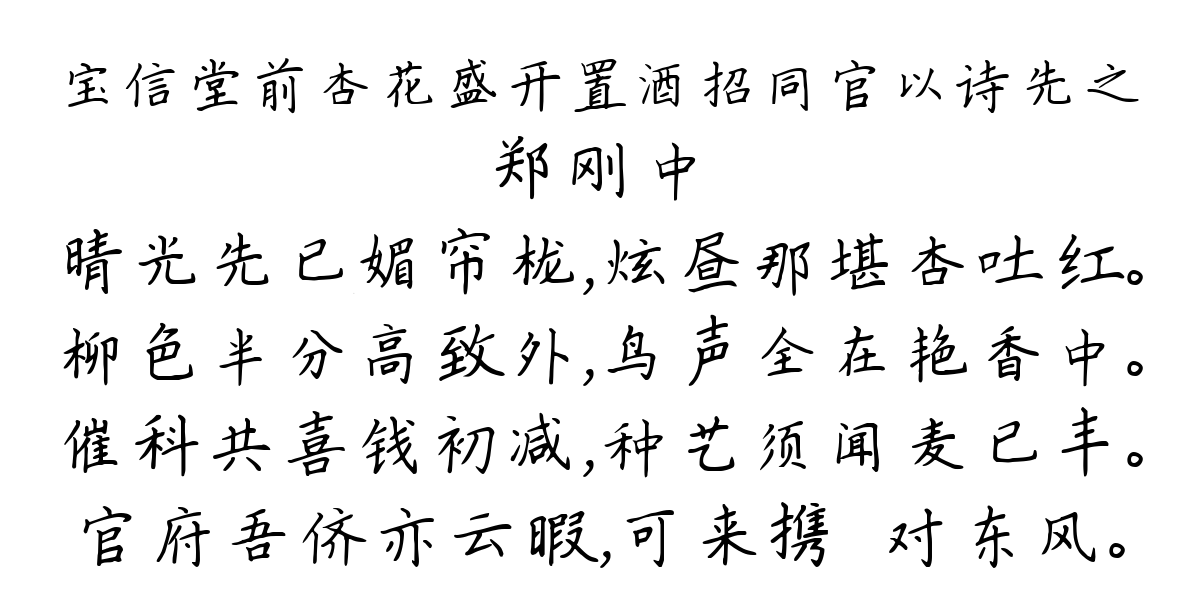 宝信堂前杏花盛开置酒招同官以诗先之
郑刚中
晴光先已媚帘栊,炫昼那堪杏吐红。
柳色半分高致外,鸟声全在艳香中。
催科共喜钱初减,种艺须闻麦已丰。
官府吾侪亦云暇,可来携 对东风。